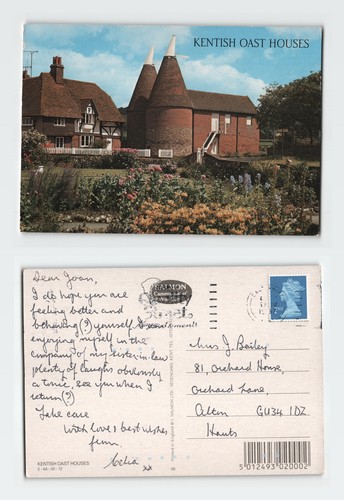 KENTISH OAST HOUSES
Dear Joan,
I do hope you are
feeling better and
behaving (?) yourself I am
enjoying myself in the
company of my sister-in-law
plenty of laughs obviously
a tonic, see you when I
return (?)
Take care
With love & best wishes
from
Celia
xx
KENTISH OAST HOUSES
SALMON
Mrs J Bailey
81, Orchard House,
Orchard Lane,
Alton GU34 1DZ
Hants
5 012493 020002